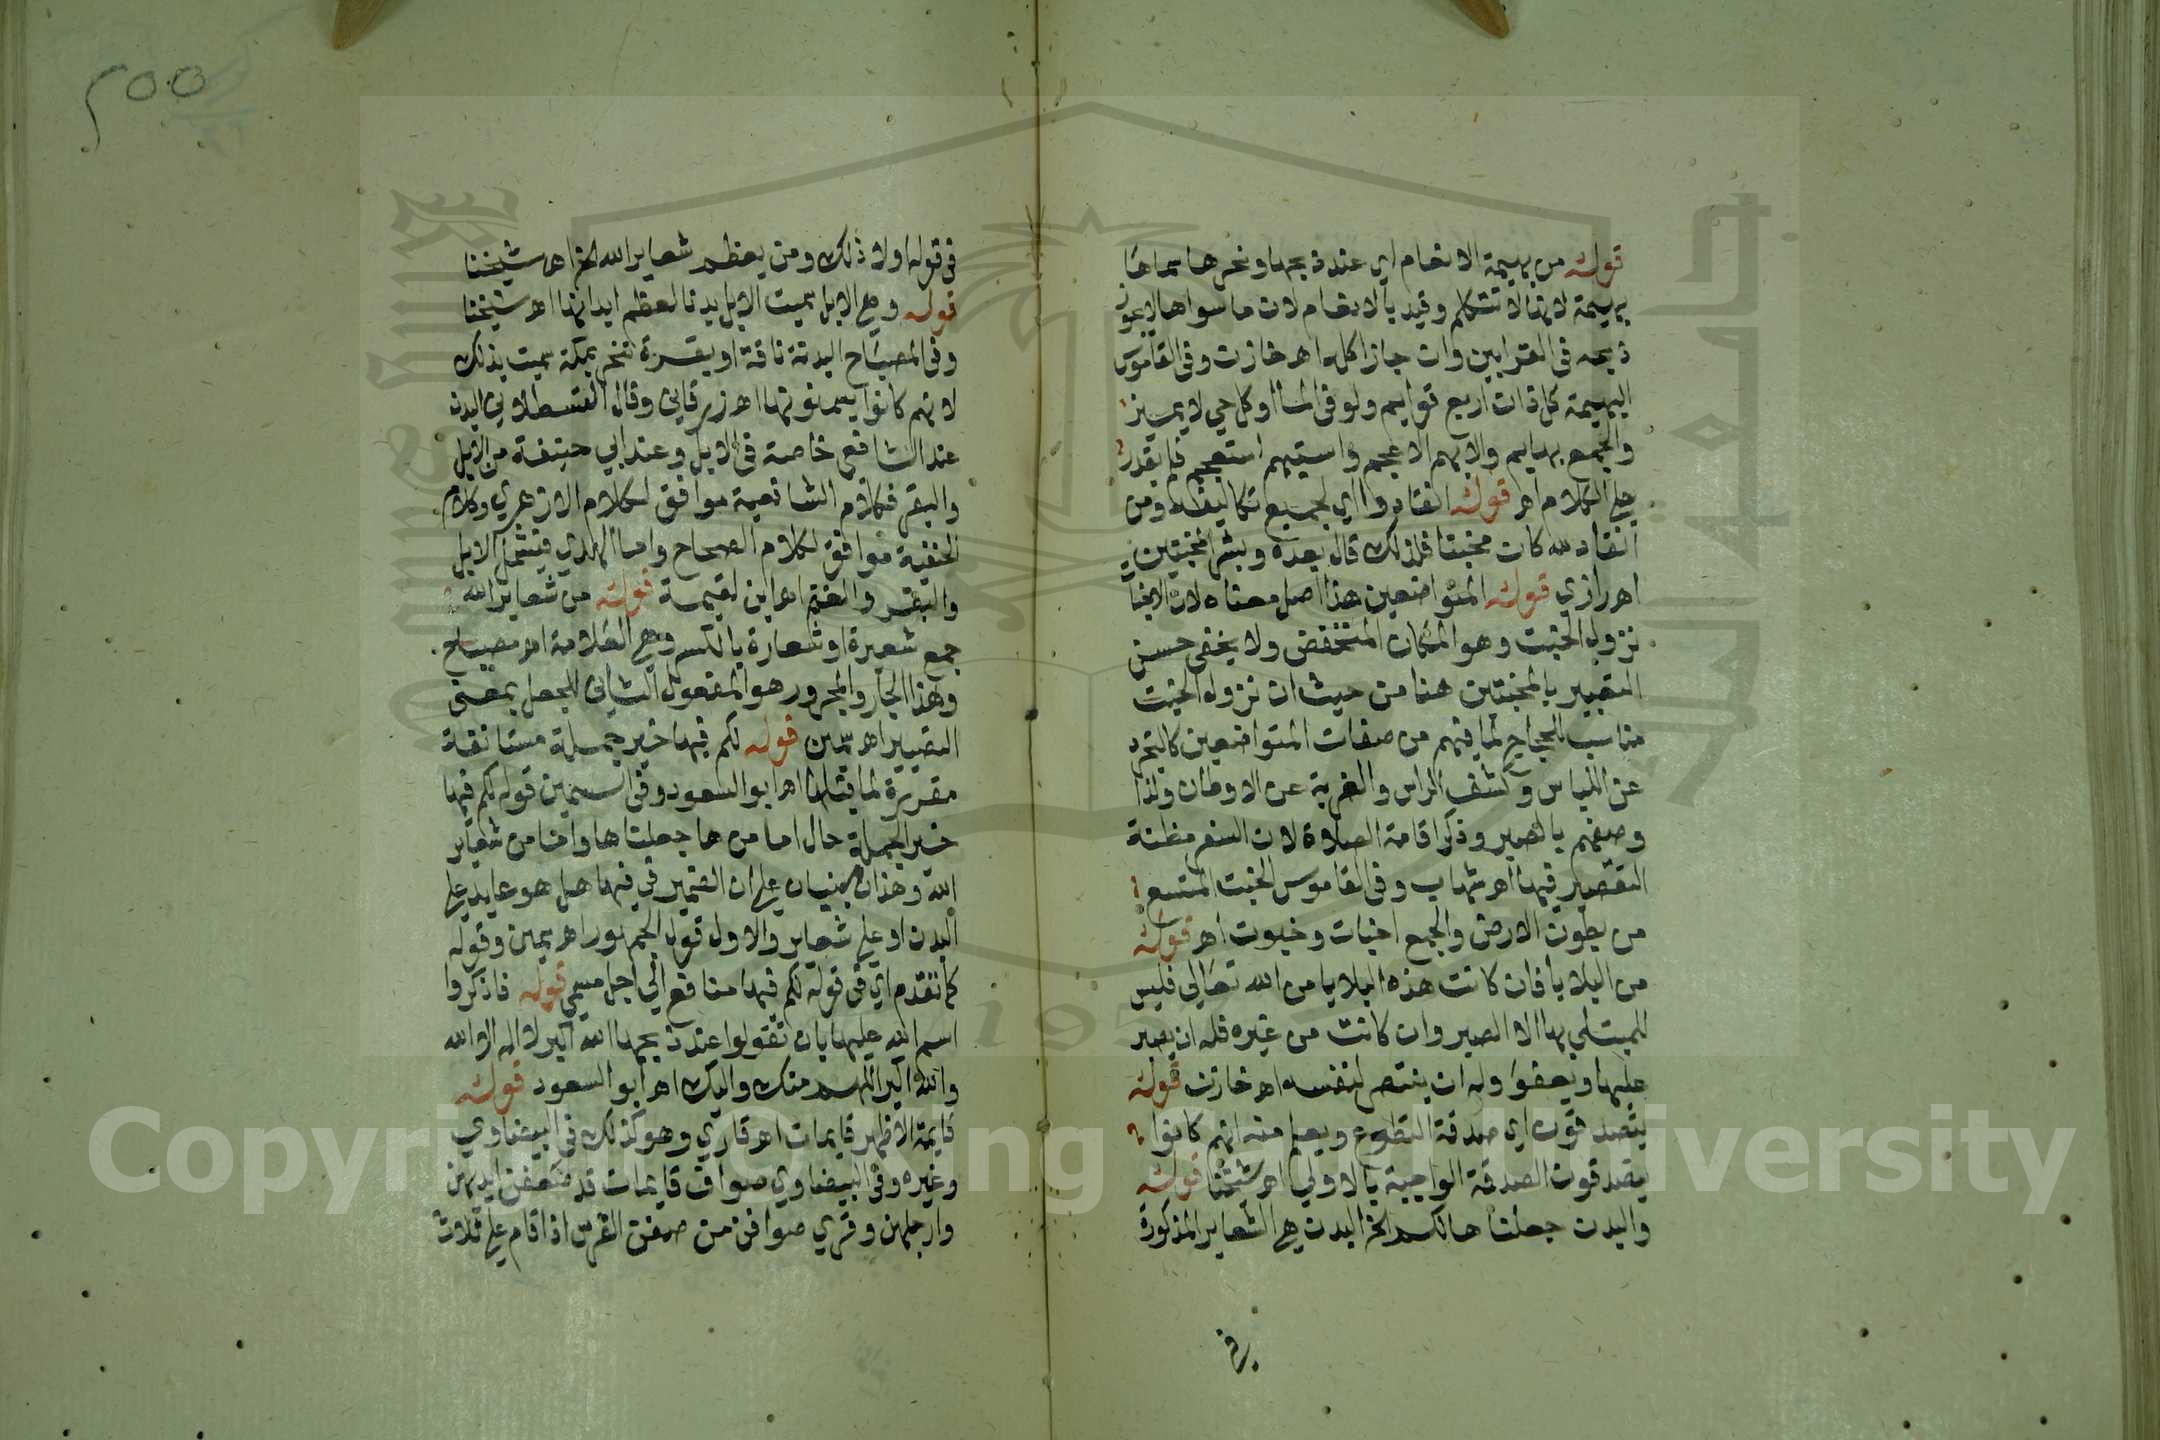 قوله من بهيمة الانعام اي عند ذبحها ونحرها سماها
بهيمة لانها لا تتكلم وقيد بالانعام لان ما سواها لا يجوز
ذبحه في القرابين وان جاز اكله اهـ خازن وفي القاموس
البهيمة كل ذات اربع قوايم ولو في الماء او كل حي لا يميز
والجمع بهايم والابهم الاعجم واستبهم استعجم فلم يقدر
علي الكلام اهـ قوله انقادوا اي لجميع تكاليفه ومن
انقاد لله كان مخبتا فلذلك قال بعده وبشر المخبتين
اهـ رازي قوله المتواضعين هذا اصل معناه لان الاخبات
نزول الخبت وهو المكان المنخفض ولا يخفي حسن
التعبير بالمخبتين هنا من حيث ان نزول الخبت
مناسب للحجاج لما فيهم من صفات المتواضعين كالتجرد
عن اللباس وكشف الراس والغربة عن الاوطان ولذا
وصفهم بالصبر وذكر اقامة الصلاة لان السفر مظنة
التقصير فيها اهـ شهاب وفي القاموس الخبت المتسع
من بطون الارض والجمع اخبات وخبوت اهـ قوله
من البلايا فان كانت هذه البلايا من الله تعالي فليس
للمبتلي بها الا الصبر وان كانت من غيره فله ان يصبر
عليها ويعفو وله ان ينتصر لنفسه اهـ خازن قوله
يتصدقون اي صدقة التطوع ويعلم منه انهم كانوا
يتصدقون الصدقة الواجبة بالاولي اهـ شيخنا قوله
والبدن جعلناها لكم الخ البدن هي الشعاير المذكورة
في
٢٥٥
في قوله اولا ذلك ومن يعظم شعاير الله الخ اهـ شيخنا
قوله وهي الابل سميت الابل بدنا لعظم ابدانها اهـ شيخنا
وفي المصباح البدنة ناقة او بقرة تنحر بمكة سميت بذلك
لانهم كانوا يسمنونها اهـ زرقاني وقال القسطلاني البدن
عند الشافعي خاصة في الابل وعند ابي حنيفة من الابل
والبقر فكلام الشافعية موافق لكلام الازهري وكلام
الحنفية موافق لكلام الصحاح واما الهدي فيشمل الابل
والبقر والغنم اهـ ابن لقيمة قوله من شعاير الله
جمع شعيرة او شعارة بالكسر وهي العلامة اهـ مصباح
وهذا الجار والمجرور هو المفعول الثاني للجعل بمعني
التصيير اهـ سمين قوله لكم فيها خير جملة مستانفة
مقررة لما قبلها اهـ ابو السعود وفي السمين قوله لكم فيها
خير الجملة حال اما من ها جعلناها وامامن شعاير
الله وهذان مبنيان علي ان الضمير في فيها هل هو عايد علي
البدن او علي شعاير والاول قول الجمهور اهـ سمين وقوله
كما تقدم اي في قوله لكم فيها منافع الي اجل مسمي قوله فاذكروا
اسم الله عليها بان تقولوا عند ذبحها الله اكبر لا اله الا الله
والله اكبر اللهم منك واليك اهـ ابو السعود قوله
قايمة الاظهر قايمات اهـ قاري وهو كذلك في البيضاوي
وغيره وفي البيضاوي صواف قايمات قد صففن ايديهن
وارجلهن وقري صوافن من صفن الفرس اذا قام علي ثلاث
Copyright © King Saud University